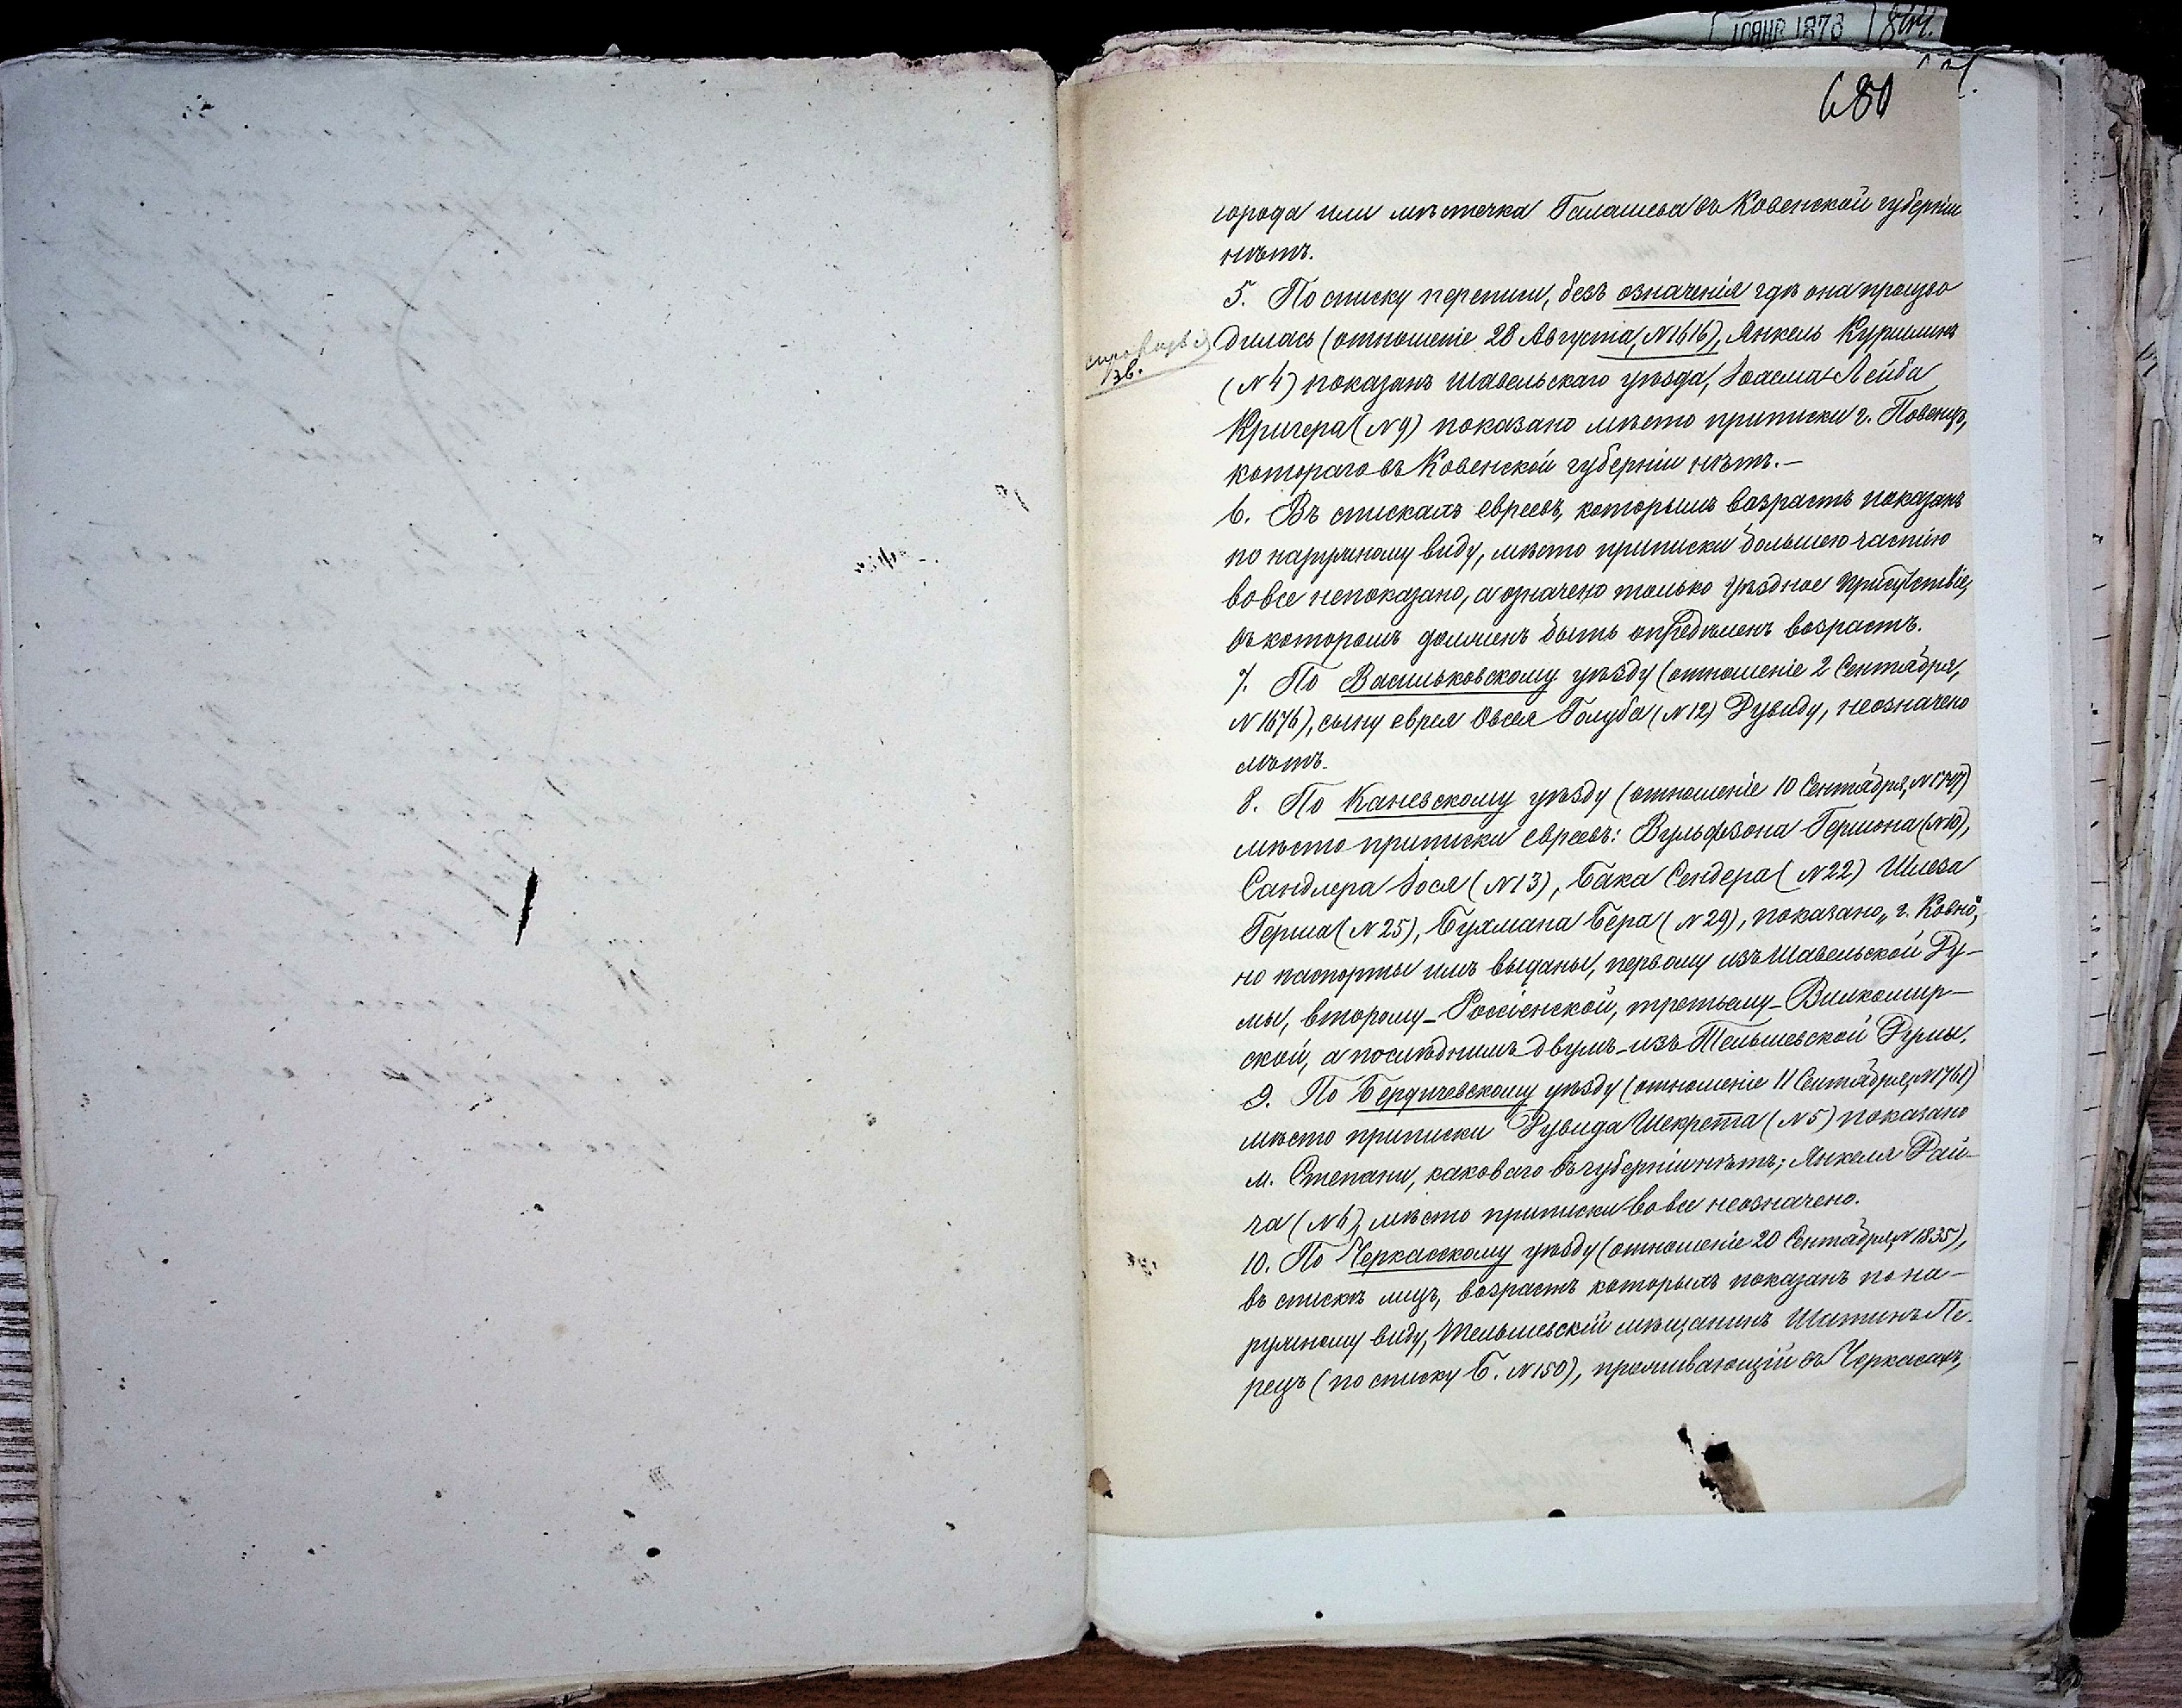 10 ЯНВ 1873
680
города или мѣстечка Галашева въ Ковенской губерніи
нѣтъ.
5. По списку переписи, безъ означенія гдѣ она произво
дилась (отношеніе 28 Августа, №1616), Янкель Куршинъ
(№ 4) показанъ Шавельскаго уѣзда, Іоаема-Лейба
Кригера (№ 9) показано мѣсто приписки г. Повенцъ,
котораго въ Ковенской губерніи нѣтъ.—
6. Въ спискахъ евреевъ, которымъ возрастъ показанъ
по наружному виду, мѣсто приписки большею частію
вовсе непоказано, а означено только уѣздное присутствіе,
въ которомъ долженъ быть опредѣленъ возрастъ.
7. По Васильковскому уѣзду (отношеніе 2 Сентября,
№ 1676), сыну еврея Овсея Голуба (№ 12) Рувиду, неозначено
лѣтъ.
8. По Каневскому уѣзду (отношеніе 10 Сентября, №1747)
мѣсто приписки евреевъ: Вульфзона Гершона (№10),
Сандлера Іося (№ 13), Бака Сендера (№ 22) Шлеза
Герша (№ 25), Бухмана Бера (№ 29), показано „г. Ковно",
но паспорты имъ выданы, первому изъ Шавельской Ду-
мы, второму – Россіенской, третьему – Вилкомир-
ской, а послѣднимъ двумъ – изъ Тельшевской Думы.
9. По Бердичевскому уѣзду (отношеніе 11 Сентября, №1761)
мѣсто приписки Рувида Шекрета (№ 5) показано
м. Степани, каковаго въ губерніи нѣтъ; Янкеля Рай-
ча (№ 6) мѣсто приписки вовсе неозначено.
10. По Черкасскому уѣзду (отношеніе 20 Сентября, № 1835),
въ спискѣ лицъ, возрастъ которыхъ показанъ по на-
ружному виду, Тельшевскій мѣщанинъ Шатинъ Пе-
рецъ (по списку Б. № 150), проживающій въ Черкасахъ,